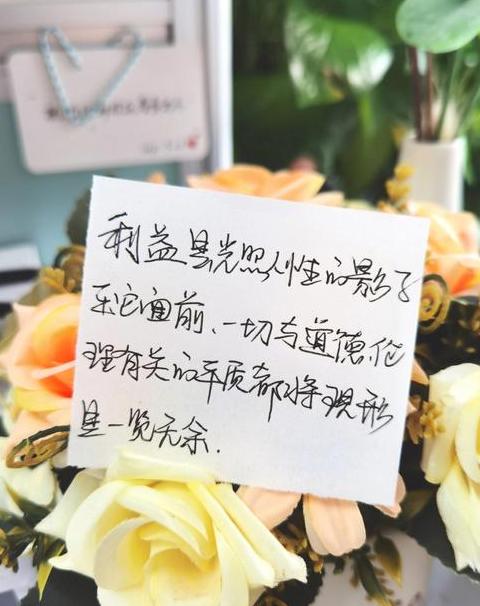 利益是光照人性的影子
在它面前、一切与道德伦
理有关的本质都将现形
且一览无余.